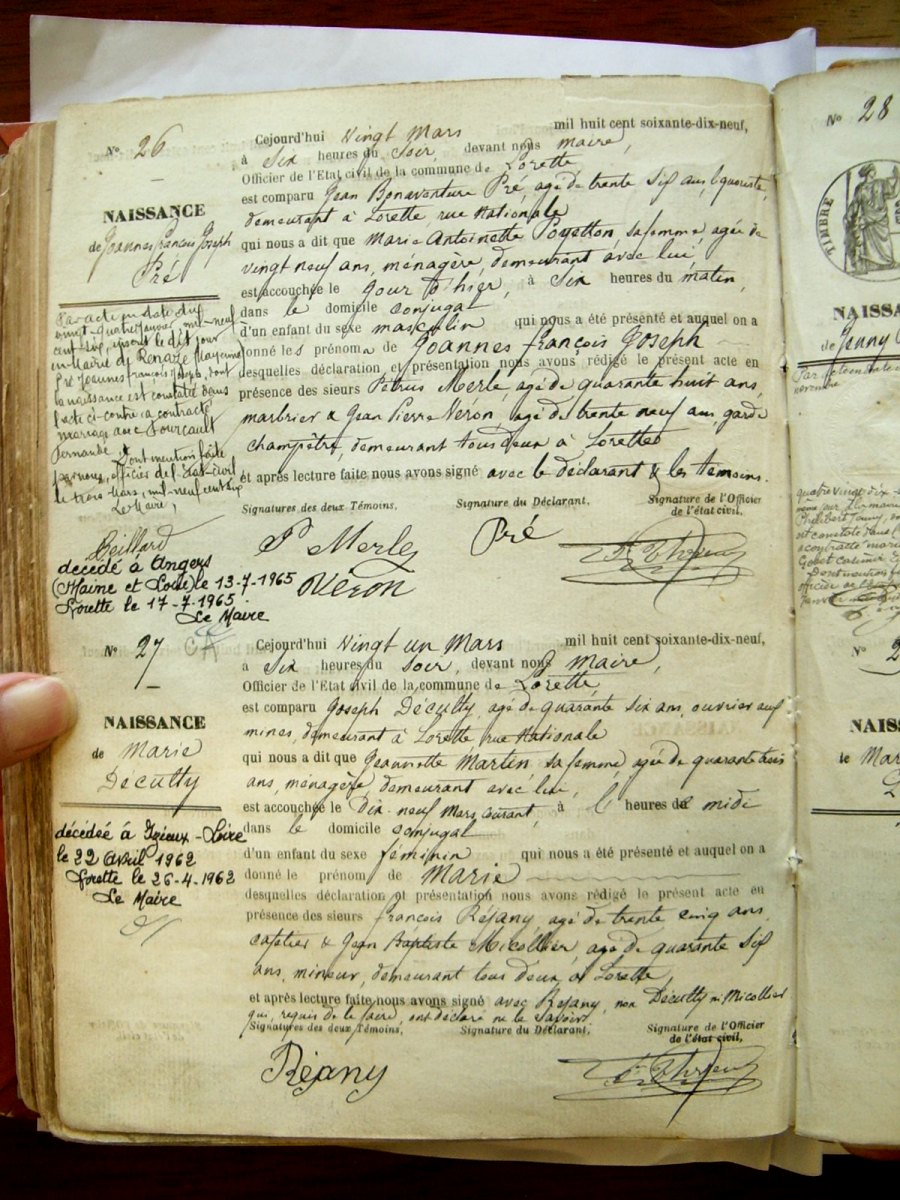 No 26
Cejourd'hui Vingt Mars mil huit cent soixante-dix-neuf,
à Six heures du Soir, devant nous Maire,
Officier de l'Etat civil de la commune de Lorette
est comparu Jean Bonaventure Pré, agé de trente Six ans,
demeurant à Lorette, rue Nationale
qui nous a dit que Marie Antoinette Poyetton, sa femme, agée de
vingt neuf ans, ménagère, demeurant avec lui,
est accouchée le Jour d'hier, à Six heures du matin,
dans le domicile conjugal
d'un enfant du sexe masculin qui nous a été présenté et auquel on a
donné les prénoms de Joannes François Joseph
desquelles déclaration et présentation nous avons rédigé le présent acte en
présence des sieurs Petrus Merle, agé de quarante huit ans,
marbrier & Jean Pierre Véron, agé de trente neuf ans, garde
champêtre, demeurant tous deux à Lorette
et après lecture faite nous avons signé avec le déclarant & les témoins.
Signatures des deux Témoins, Signature du Déclarant, Signature de l'Officier
de l'état civil,
P Merle Pré
Véron
NAISSANCE
de Joannes François Joseph
Pré
Par acte en date du
vingt-quatre Janvier, mil-neuf
cent-six, inscrit le dit jour
en Mairie de Renazé (Mayenne)
Pré Joannes François Joseph, dont
la naissance est constatée dans
l'acte ci-contre a contracté
mariage avec Fourcault
Fernande. Dont mention faite
par nous, officier de l'état-civil
le trois Mars, mil-neuf cent six
Le Maire,
Beillard
décédé à Angers
(Maine et Loire) le 13-7-1965
Lorette le 17-7-1965.
Le Maire
No 27
Cejourd'hui Vingt un Mars mil huit cent soixante-dix-neuf,
à Six heures du Soir, devant nous Maire,
Officier de l'Etat civil de la commune de Lorette,
est comparu Joseph Décutty, agé de quarante six ans, ouvrier aux
mines, demeurant à Lorette rue Nationale
qui nous a dit que Jeannette Martin, sa femme, agée de quarante trois
ans, ménagère, demeurant avec lui,
est accouchée le Dix-neuf Mars courant, à l'heure de midi
dans le domicile conjugal
d'un enfant du sexe féminin qui nous a été présenté et auquel on a
donné le prénom de Marie
desquelles déclaration et présentation nous avons rédigé le présent acte en
présence des sieurs François Réjany, agé de trente cinq ans,
cafetier & Jean Baptiste Micollier, agé de quarante Six
ans, mineur, demeurant tous deux à Lorette,
et après lecture faite nous avons signé avec Rejany, non Décutty ni Micollier
qui, requis de le faire, ont déclaré ne le Savoir.
Signatures des deux Témoins, Signature du Déclarant, Signature de l'Officier
de l'état civil,
Réjany
NAISSANCE
de Marie
Décutty
décédée à Izieux-Loire
le 22 Avril 1962
Lorette le 26-4-1962
Le Maire
No 28
TIMBRE
NAISSA
de Jenny
quatre vingt dix
Philibert
est constatée dans l'
a contracté mari
Dont mention
officier de l'
No 2
NAISS
de Mar